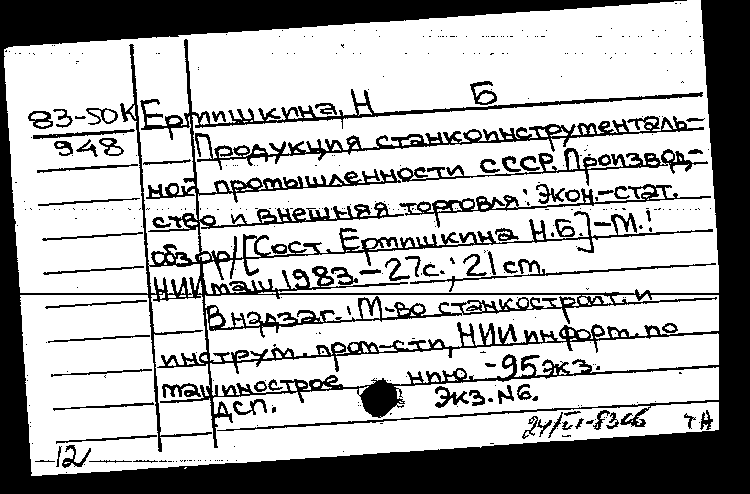 83-50К Ермишкина, Н Б
948 Продукция станкоинструменталь-
ной промышленности СССР. Производ-
ство и внешняя торговля: Экон.-стат.
обзор/[Сост. Ермишкина Н.Б.]-М.:
НИИмаш, 1983.-27с.; 21 cm.
В надзаг.: М-во станкостроит. и
инструм. пром-сти, НИИ информ. по
машиностроению. -95 экз.
ДСП. Экз. №6.
24/VI-83
12